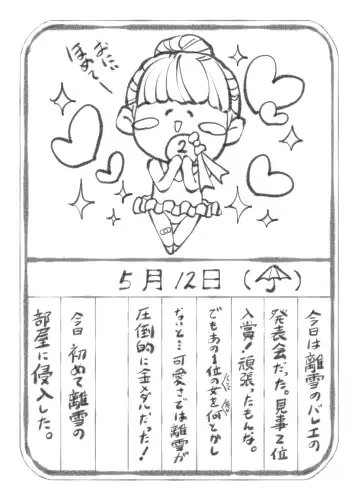 おにぃ
ほめてー
2
5月12日()
今日は離雪のバレエの
発表会だった。見事2位
入賞!頑張ったもんな。
でもあの1位の女を何とかし
ないと…可愛さでは離雪が
圧倒的に金メダルだった!
今日 初めて離雪の
部屋に侵入した。